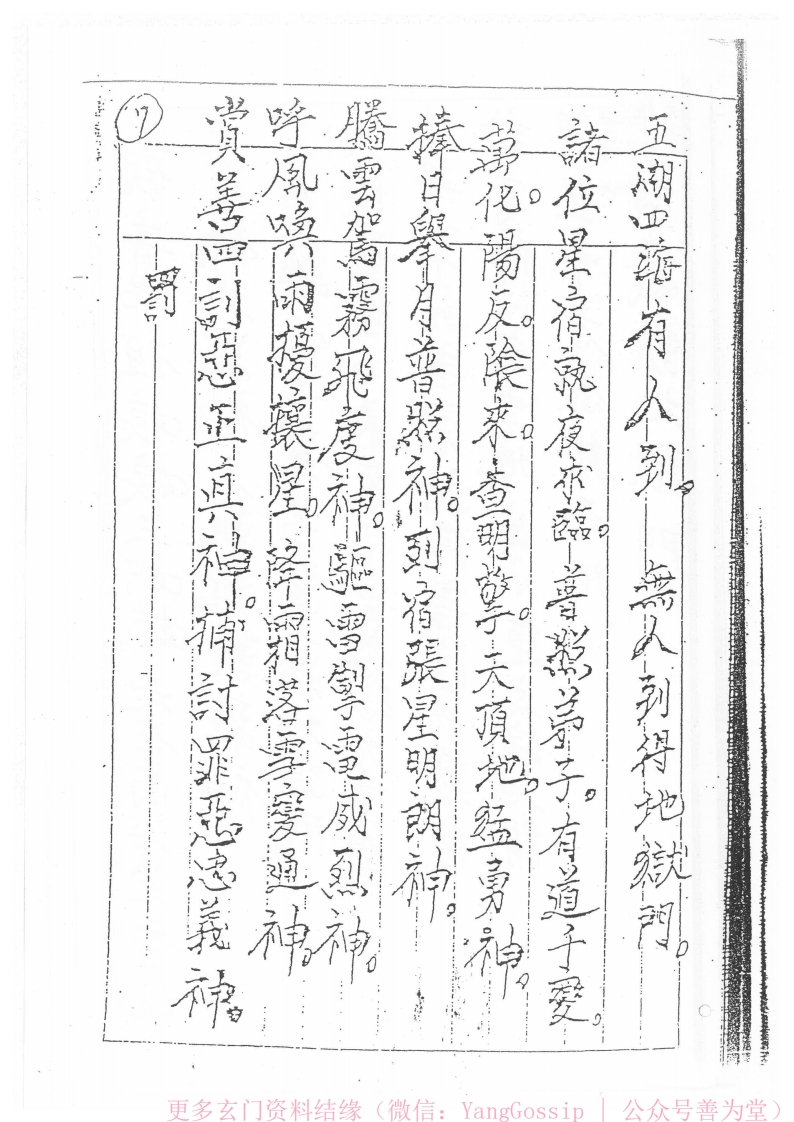 五湖四海有人到。無人到得地獄門。
諸位星宿夜來臨。普照弟子。有道千變。
萬化。陽反。陰來。查明擎。天頂地。猛勇神。
捧日舉月普照神。列宿張星明朗神。
騰雲駕霧飛度神。驅雷掣電威烈神。
呼風喚雨擾攘星。降霜落雪變通神。
賞善罰惡正真神。捕討罪惡忠義神。
罰
17
更多玄门资料结缘（微信：YangGossip | 公众号善为堂）